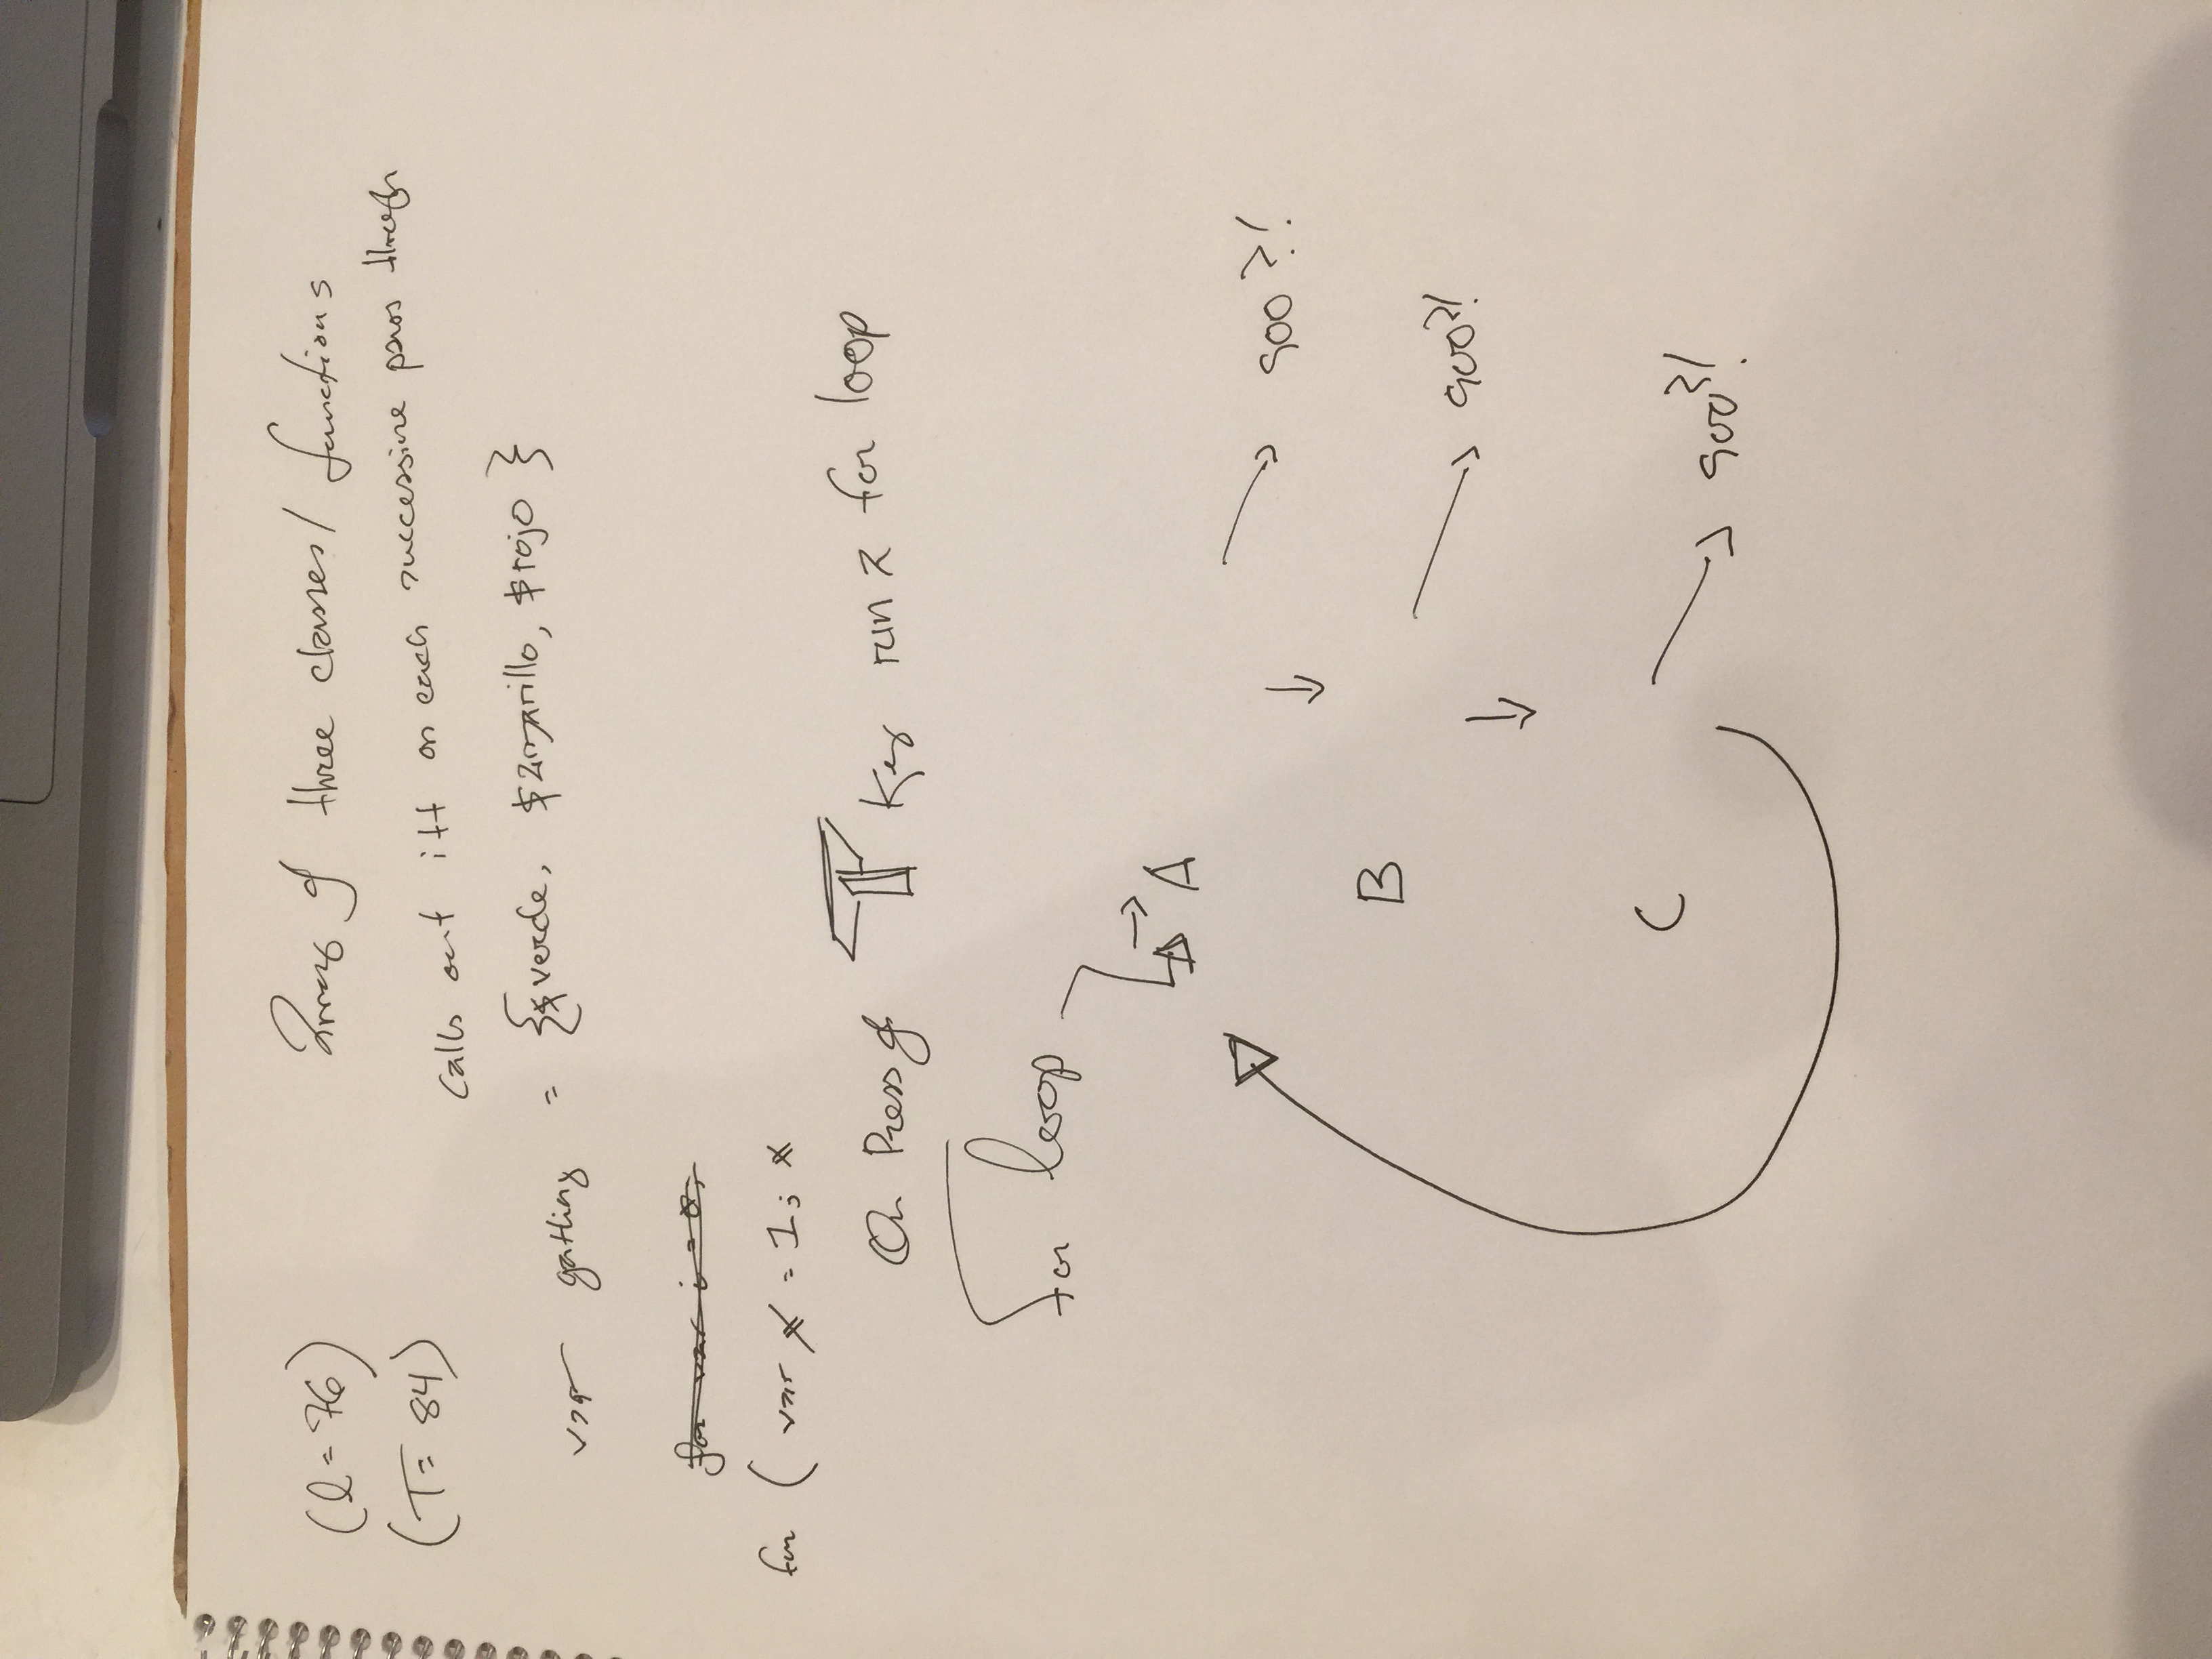 (l = 76)
(T = 84)
Array of three classes/functions
calls out i++ on each successive pass through
var gatling = {$verde, $amarillo, $rojo}
for var i = 0;
for ( var x = 1; x
On Press of T Key run a for loop
For loop
A
B
C
goo?!
goo?!
goo?!